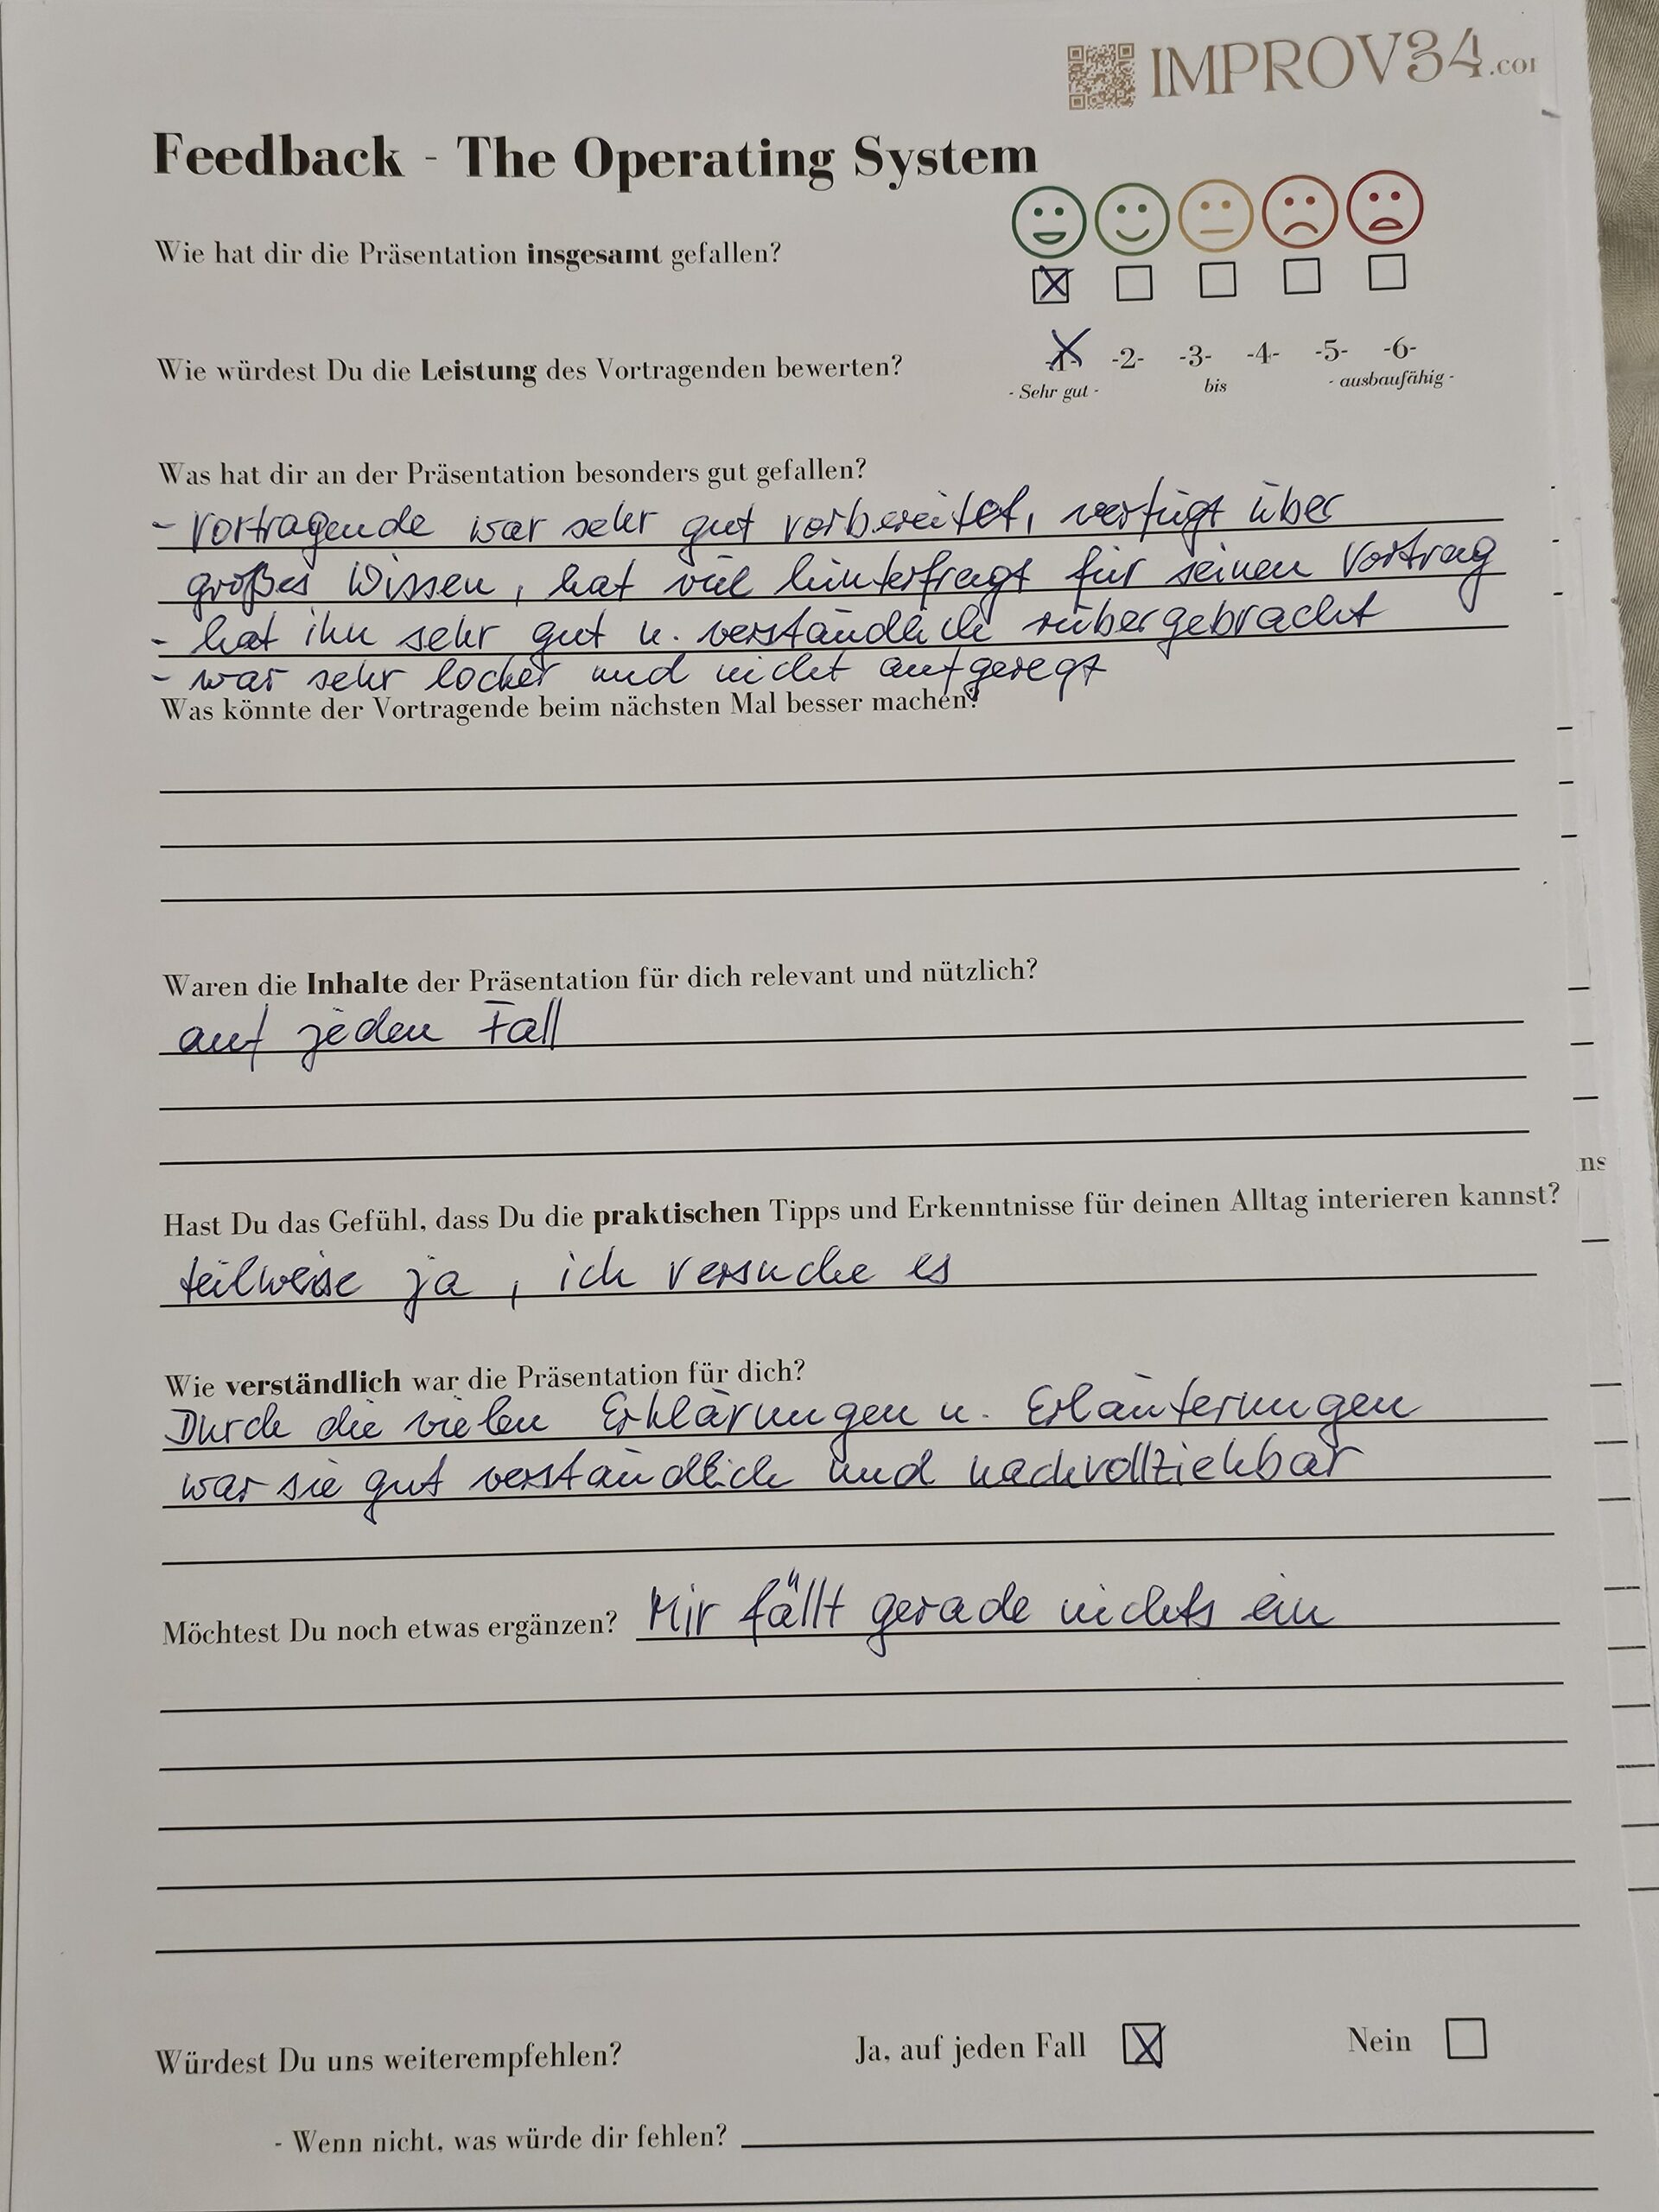 IMPROV34.co
Feedback - The Operating System
Wie hat dir die Präsentation insgesamt gefallen?
Wie würdest Du die Leistung des Vortragenden bewerten?
-1- -2- -3- -4- -5- -6-
- Sehr gut - bis - ausbaufähig -
Was hat dir an der Präsentation besonders gut gefallen?
- Vortragende war sehr gut vorbereitet, verfügt über
großes Wissen, hat viel hinterfragt für seinen Vortrag
- hat ihn sehr gut u. verständlich rübergebracht
- war sehr locker und nicht aufgeregt
Was könnte der Vortragende beim nächsten Mal besser machen?
Waren die Inhalte der Präsentation für dich relevant und nützlich?
auf jeden Fall
ns
Hast Du das Gefühl, dass Du die praktischen Tipps und Erkenntnisse für deinen Alltag interieren kannst?
teilweise ja, ich versuche es
Wie verständlich war die Präsentation für dich?
Durch die vielen Erklärungen u. Erläuterungen
war sie gut verständlich und nachvollziehbar
Möchtest Du noch etwas ergänzen? Mir fällt gerade nichts ein
Würdest Du uns weiterempfehlen? Ja, auf jeden Fall Nein
- Wenn nicht, was würde dir fehlen?